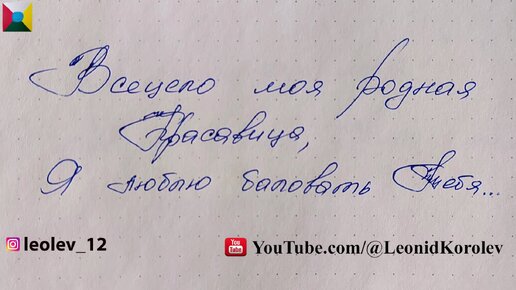 Всецело моя родная
Красавица,
Я люблю баловать Тебя...
leolev_12
YouTube.com/@LeonidKorolev